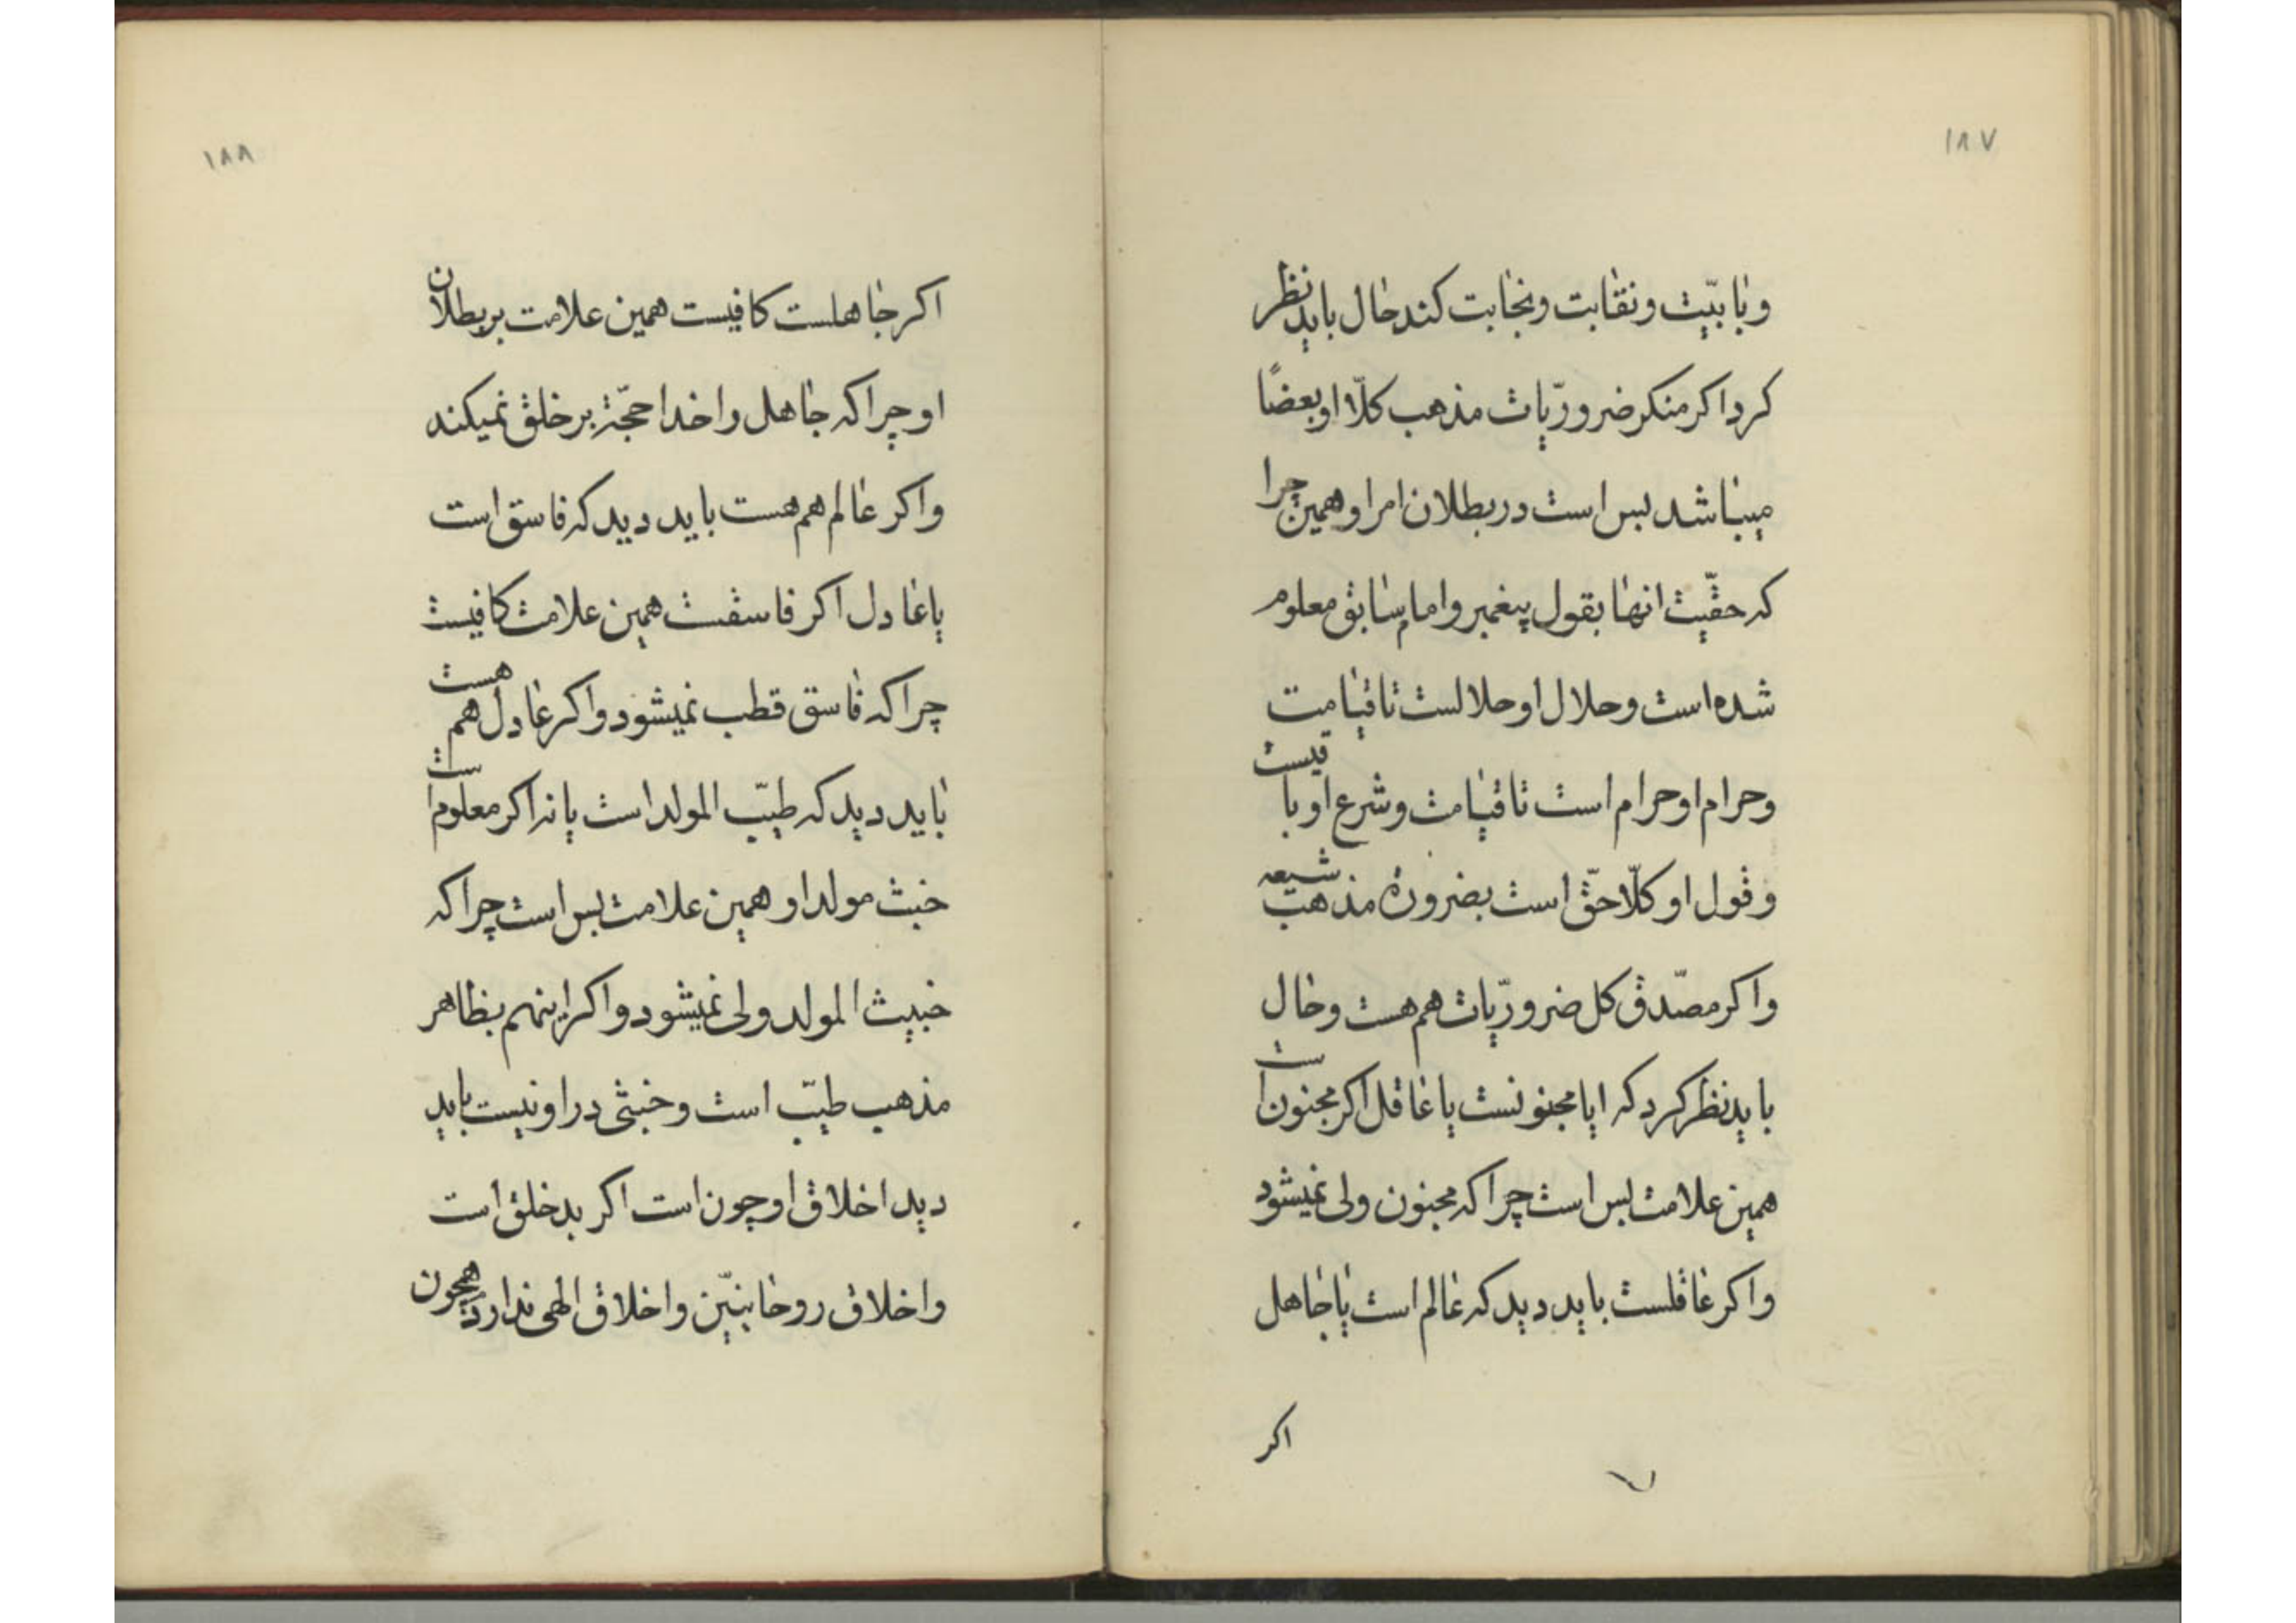 ١٨٧
و بابیّت و نقابت و نجابت کند حال باید نظر
کرد اکر منکر ضروریّات مذهب کلّا او بعضًا
میباشد بس است در بطلان امر او همین چرا
که حقّیت انها بقول پیغمبر و امام سابق معلوم
شده است و حلال او حلالست تا قیامت
و حرام او حرام است تا قیامت و شرع او باقیست
و قول او کلّا حقّ است بضرورة مذهب شیعه
و اکر مصدّق کل ضروریّات هم هست و حال
باید نظر کرد که ایا مجنونست یا عاقل اکر مجنون است
همین علامت بس است چرا که مجنون ولی نمیشود
و اکر عاقلست باید دید که عالم است یا جاهل
اکر
١٨٨
اکر جاهلست کافیست همین علامت بر بطلان
او چرا که جاهل را خدا حجّة بر خلق نمیکند
و اکر عالم هم هست باید دید که فاسق است
یا عادل اکر فاسقست همین علامت کافیست
چرا که فاسق قطب نمیشود و اکر عادل هم هست
باید دید که طیّب المولد است یا نه اکر معلوم است
خبث مولد او همین علامت بس است چرا که
خبیث المولد ولی نمیشود و اکر اینهم بظاهر
مذهب طیّب است و خبثی در او نیست باید
دید اخلاق او چون است اکر بد خلق است
و اخلاق روحانییّن و اخلاق الهی ندارد همچون